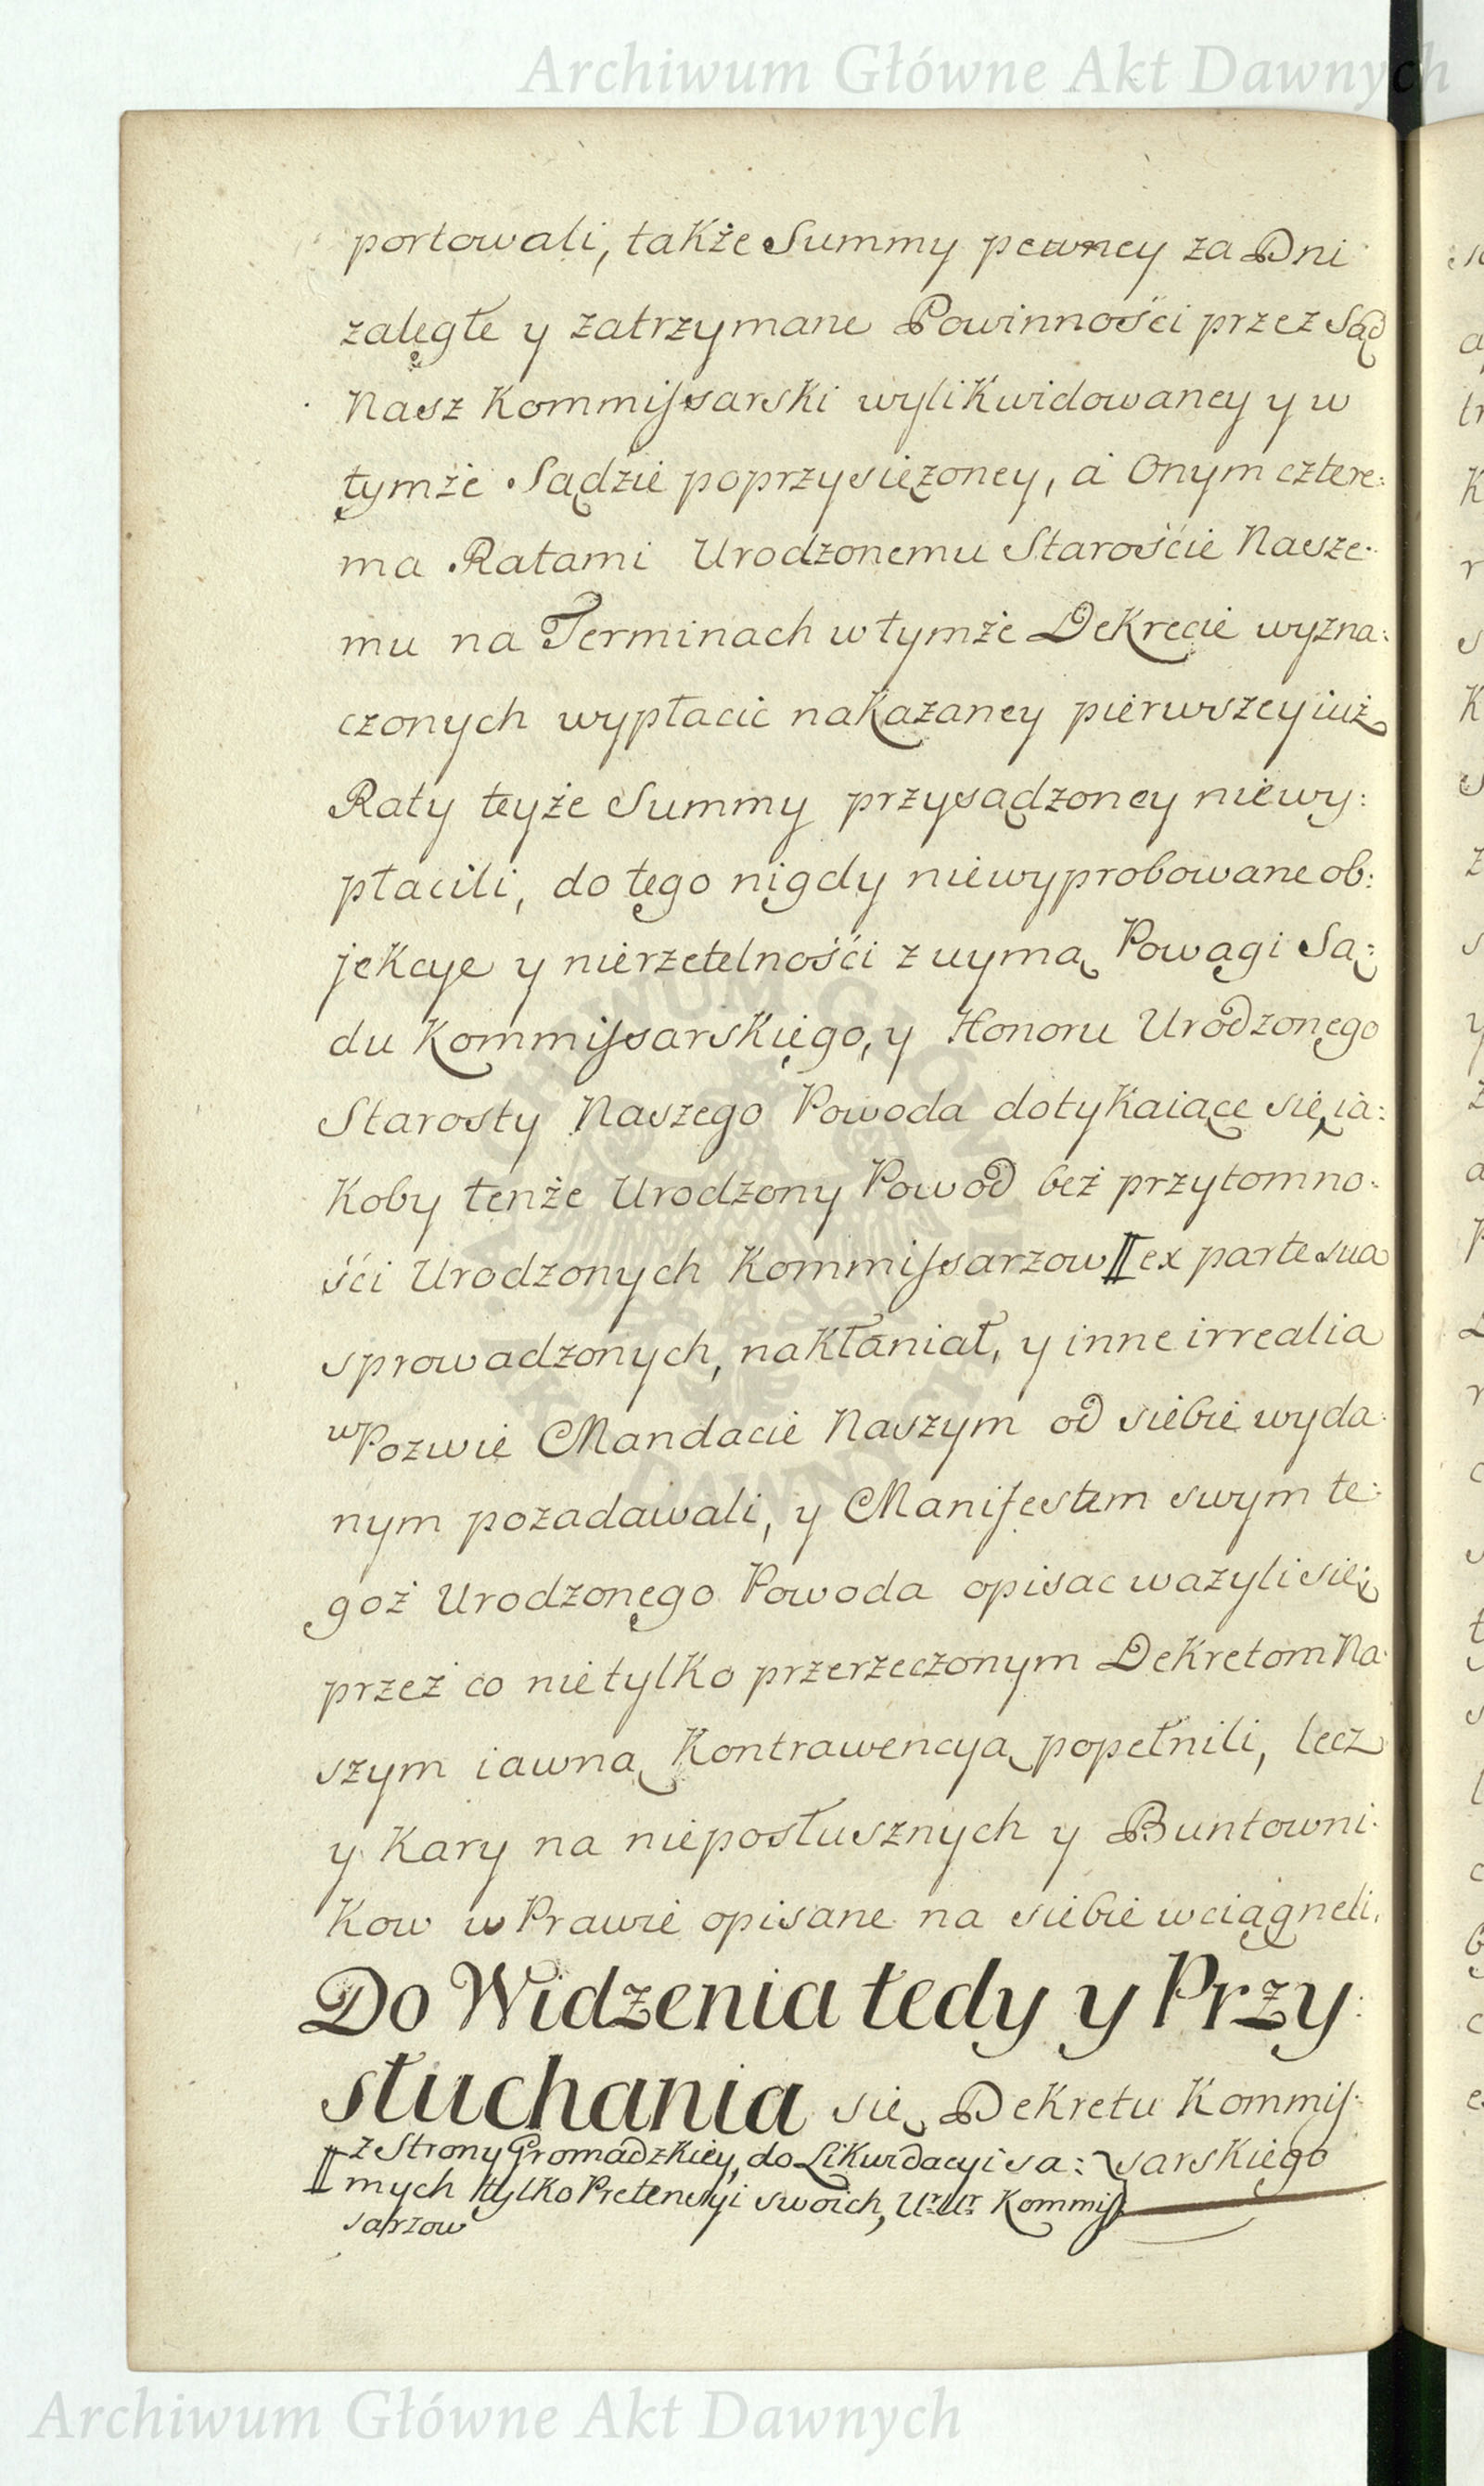 Archiwum Główne Akt Dawnych
portowali, także Summy pewney za Dni
zaległe y zatrzymane Powinnośći przez Sąd
Nasz Kommissarski wylikwidowaney y w
tymże Sądzie poprzysiężoney, a Onym cztere:
ma Ratami Urodzonemu Starośćie Nasze:
mu na Terminach w tymże Dekrecie wyzna:
czonych wypłacic nakazaney pierwszey iuż
Raty teyże Summy przysądzoney niewy:
płacili, do tego nigdy niewyprobowane ob:
jekcye y nierzetelnośći z uymą Powagi Są:
du Kommissarskiego, y Honoru Urodzonego
Starosty Naszego Powoda dotykaiące się, ia:
koby tenże Urodzony Powod bez przytomno:
śći Urodzonych Kommissarzow ex parte sua
sprowadzonych, nakłaniał, y inne irrealia
w Pozwie Mandacie Naszym od siebie wyda:
nym pozadawali, y Manifestem swym te:
goż Urodzonego Powoda opisac ważyli się;
przez co nietylko przerzeczonym Dekretom Na:
szym iawną Kontrawencyą popełnili, lecz
y Kary na nieposłusznych y Buntowni:
kow w Prawie opisane na siebie wciągneli.
Do Widzenia tedy y Przy:
słuchania się Dekretu Kommis:
sarskiego
z Strony Gromadzkiey, do Likwidacyi sa:
mych tylko Pretensyi swoich, Ur: Ur: Kommis
sarzow
ARCHIWUM GŁÓWNE AKT DAWNYCH
Archiwum Główne Akt Dawnych